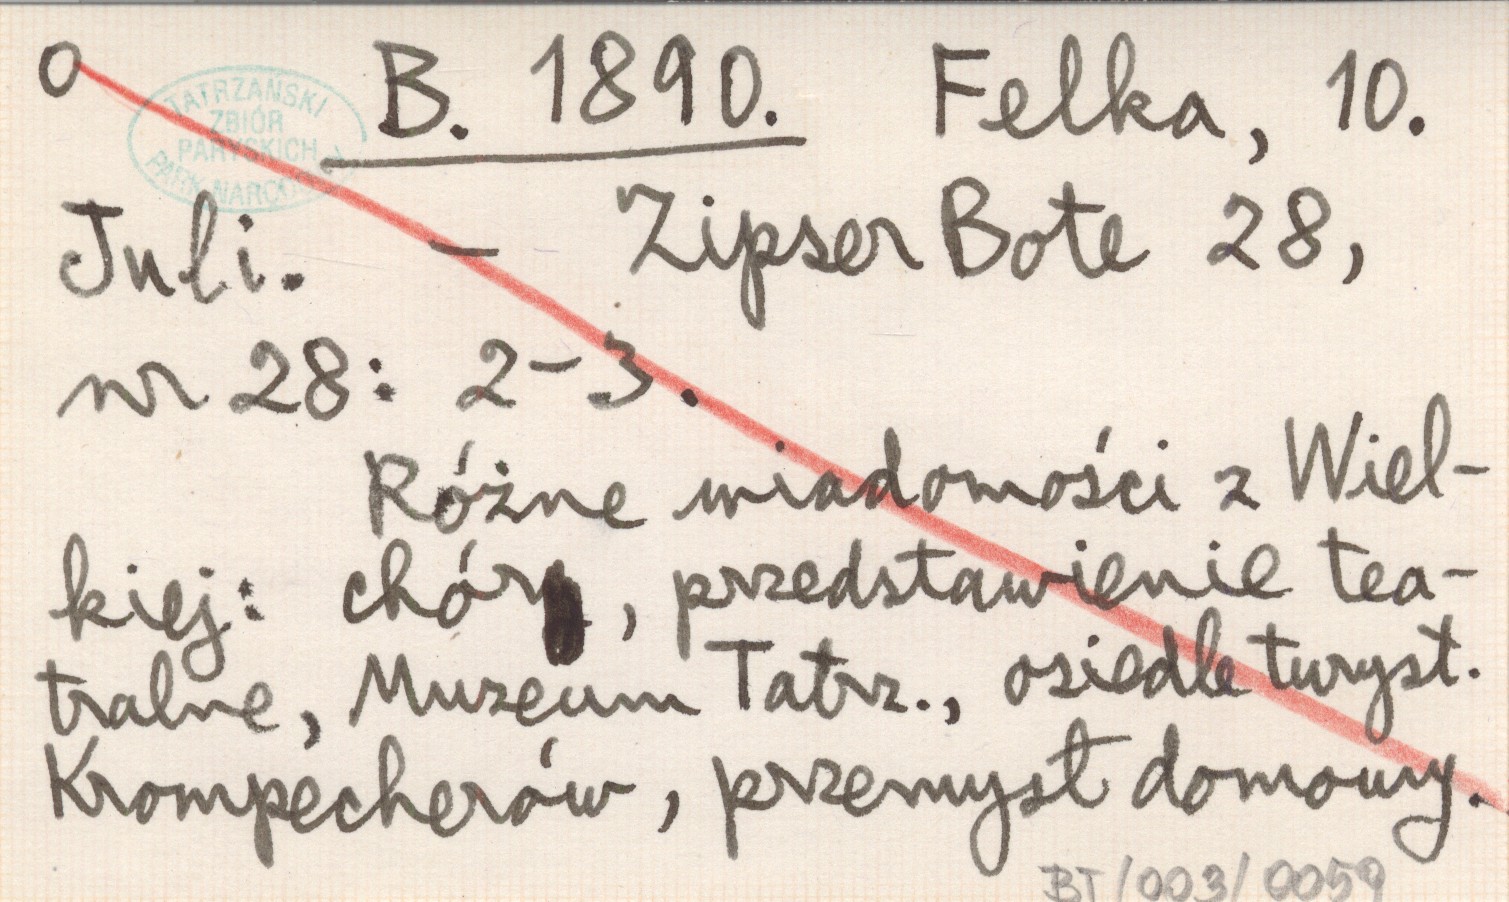 O B. 1890. Felka, 10.
TATRZAŃSKI
ZBIÓR
PARYSKICH
PARK NARODOWY
Juli. — Zipser Bote 28,
nr 28: 2-3.
Różne wiadomości z Wiel-
kiej: chóry, przedstawienie tea-
tralne, Muzeum Tatrz., osiedle turyst.
Krompecherów, przemysł domowy.
BT/003/0059